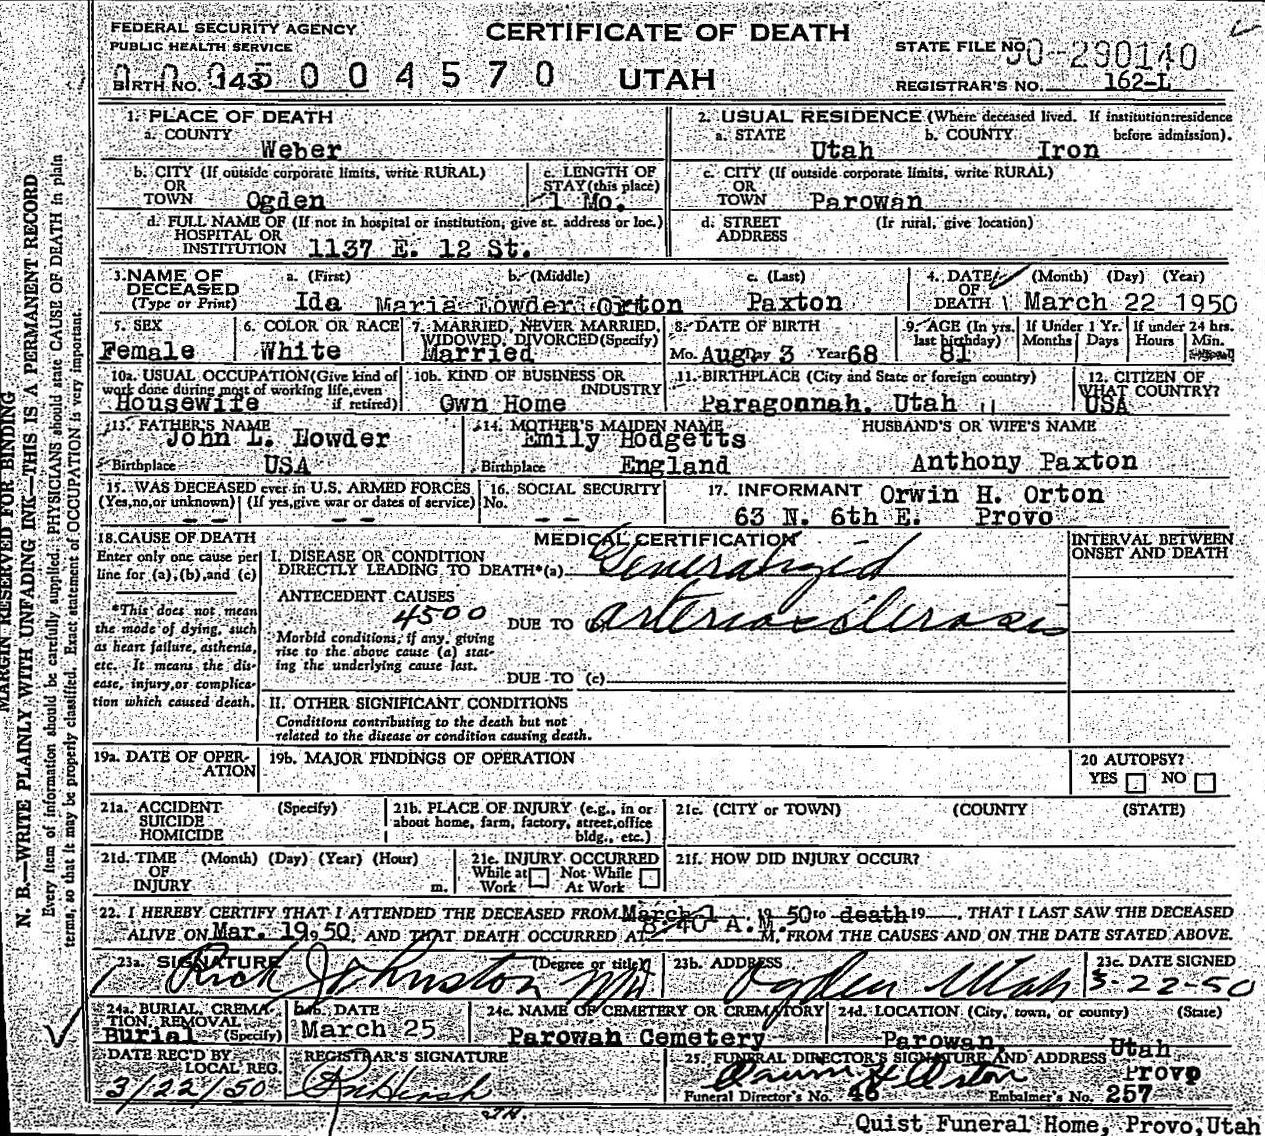 FEDERAL SECURITY AGENCY
PUBLIC HEALTH SERVICE
CERTIFICATE OF DEATH
STATE FILE NO. 50-290140
BIRTH NO. 143 0 0 0 5 0 0 4 5 7 0
UTAH
REGISTRAR'S NO. 162-L
1. PLACE OF DEATH
a. COUNTY
Weber
2. USUAL RESIDENCE (Where deceased lived. If institution: residence before admission).
a. STATE Utah b. COUNTY Iron
b. CITY (If outside corporate limits, write RURAL)
OR
TOWN Ogden
c. LENGTH OF
STAY (this place)
1 Mo.
c. CITY (If outside corporate limits, write RURAL)
OR
TOWN Parowan
d. FULL NAME OF (If not in hospital or institution, give st. address or loc.)
HOSPITAL OR
INSTITUTION 1137 E. 12 St.
d. STREET (If rural, give location)
ADDRESS
3. NAME OF DECEASED
(Type or Print)
a. (First) b. (Middle) c. (Last)
Ida Maria Lowder Orton Paxton
4. DATE OF DEATH (Month) (Day) (Year)
March 22 1950
5. SEX
Female
6. COLOR OR RACE
White
7. MARRIED, NEVER MARRIED,
WIDOWED, DIVORCED (Specify)
Married
8. DATE OF BIRTH
Mo. Aug Day 3 Year 68
9. AGE (In yrs. last birthday)
81
If Under 1 Yr.
Months Days
If under 24 hrs.
Hours Min.
10a. USUAL OCCUPATION (Give kind of
work done during most of working life, even
if retired)
Housewife
10b. KIND OF BUSINESS OR
INDUSTRY
Own Home
11. BIRTHPLACE (City and State or foreign country)
Paragonnah, Utah
12. CITIZEN OF
WHAT COUNTRY?
USA
13. FATHER'S NAME
John L. Lowder
Birthplace USA
14. MOTHER'S MAIDEN NAME
Emily Hodgetts
Birthplace England
HUSBAND'S OR WIFE'S NAME
Anthony Paxton
15. WAS DECEASED ever in U.S. ARMED FORCES
(Yes, no, or unknown) (If yes, give war or dates of service)
-- --
16. SOCIAL SECURITY
No.
--
17. INFORMANT Orwin H. Orton
63 N. 6th E. Provo
18. CAUSE OF DEATH
Enter only one cause per
line for (a), (b), and (c)
*This does not mean
the mode of dying, such
as heart failure, asthenia,
etc. It means the dis-
ease, injury, or complica-
tion which caused death.
MEDICAL CERTIFICATION
I. DISEASE OR CONDITION
DIRECTLY LEADING TO DEATH*(a) Generalized
ANTECEDENT CAUSES
4500
DUE TO arteriosclerosis
Morbid conditions, if any, giving
rise to the above cause (a) stat-
ing the underlying cause last.
DUE TO (c)
II. OTHER SIGNIFICANT CONDITIONS
Conditions contributing to the death but not
related to the disease or condition causing death.
INTERVAL BETWEEN
ONSET AND DEATH
19a. DATE OF OPER-
ATION
19b. MAJOR FINDINGS OF OPERATION
20 AUTOPSY?
YES NO
21a. ACCIDENT (Specify)
SUICIDE
HOMICIDE
21b. PLACE OF INJURY (e.g., in or
about home, farm, factory, street, office
bldg., etc.)
21c. (CITY or TOWN) (COUNTY) (STATE)
21d. TIME (Month) (Day) (Year) (Hour)
OF
INJURY m.
21e. INJURY OCCURRED
While at Work Not While At Work
21f. HOW DID INJURY OCCUR?
22. I HEREBY CERTIFY THAT I ATTENDED THE DECEASED FROM March 1 19 50 to death 19 , THAT I LAST SAW THE DECEASED
ALIVE ON Mar. 19 19 50, AND THAT DEATH OCCURRED AT 8:40 A.M. M. FROM THE CAUSES AND ON THE DATE STATED ABOVE.
23a. SIGNATURE (Degree or title)
Rich Johnston MD
23b. ADDRESS
Ogden Utah
23c. DATE SIGNED
3-22-50
24a. BURIAL, CREMA-
TION REMOVAL
(Specify)
Burial
24b. DATE
March 25
24c. NAME OF CEMETERY OR CREMATORY
Parowan Cemetery
24d. LOCATION (City, town, or county) (State)
Parowan, Utah
DATE REC'D BY
LOCAL REG.
3/22/50
REGISTRAR'S SIGNATURE
25. FUNERAL DIRECTOR'S SIGNATURE AND ADDRESS
Orwin H. Orton Provo
Funeral Director's No. 46 Embalmer's No. 257
Quist Funeral Home, Provo, Utah
MARGIN RESERVED FOR BINDING
N. B.—WRITE PLAINLY WITH UNFADING INK—THIS IS A PERMANENT RECORD
Every item of information should be carefully supplied. PHYSICIANS should state CAUSE OF DEATH in plain
terms, so that it may be properly classified. Exact statement of OCCUPATION is very important.